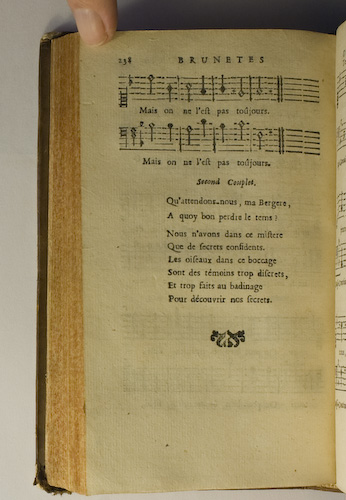 238 BRUNETES
Mais on ne l'eſt pas toûjours.
Mais on ne l'eſt pas toûjours.
Second Couplet.
Qu'attendons-nous, ma Bergere,
A quoy bon perdre le tems ?
Nous n'avons dans ce miſtere
Que de ſecrets confidents.
Les oiſeaux dans ce boccage
Sont des témoins trop diſcrets,
Et trop faits au badinage
Pour découvrir nos ſecrets.